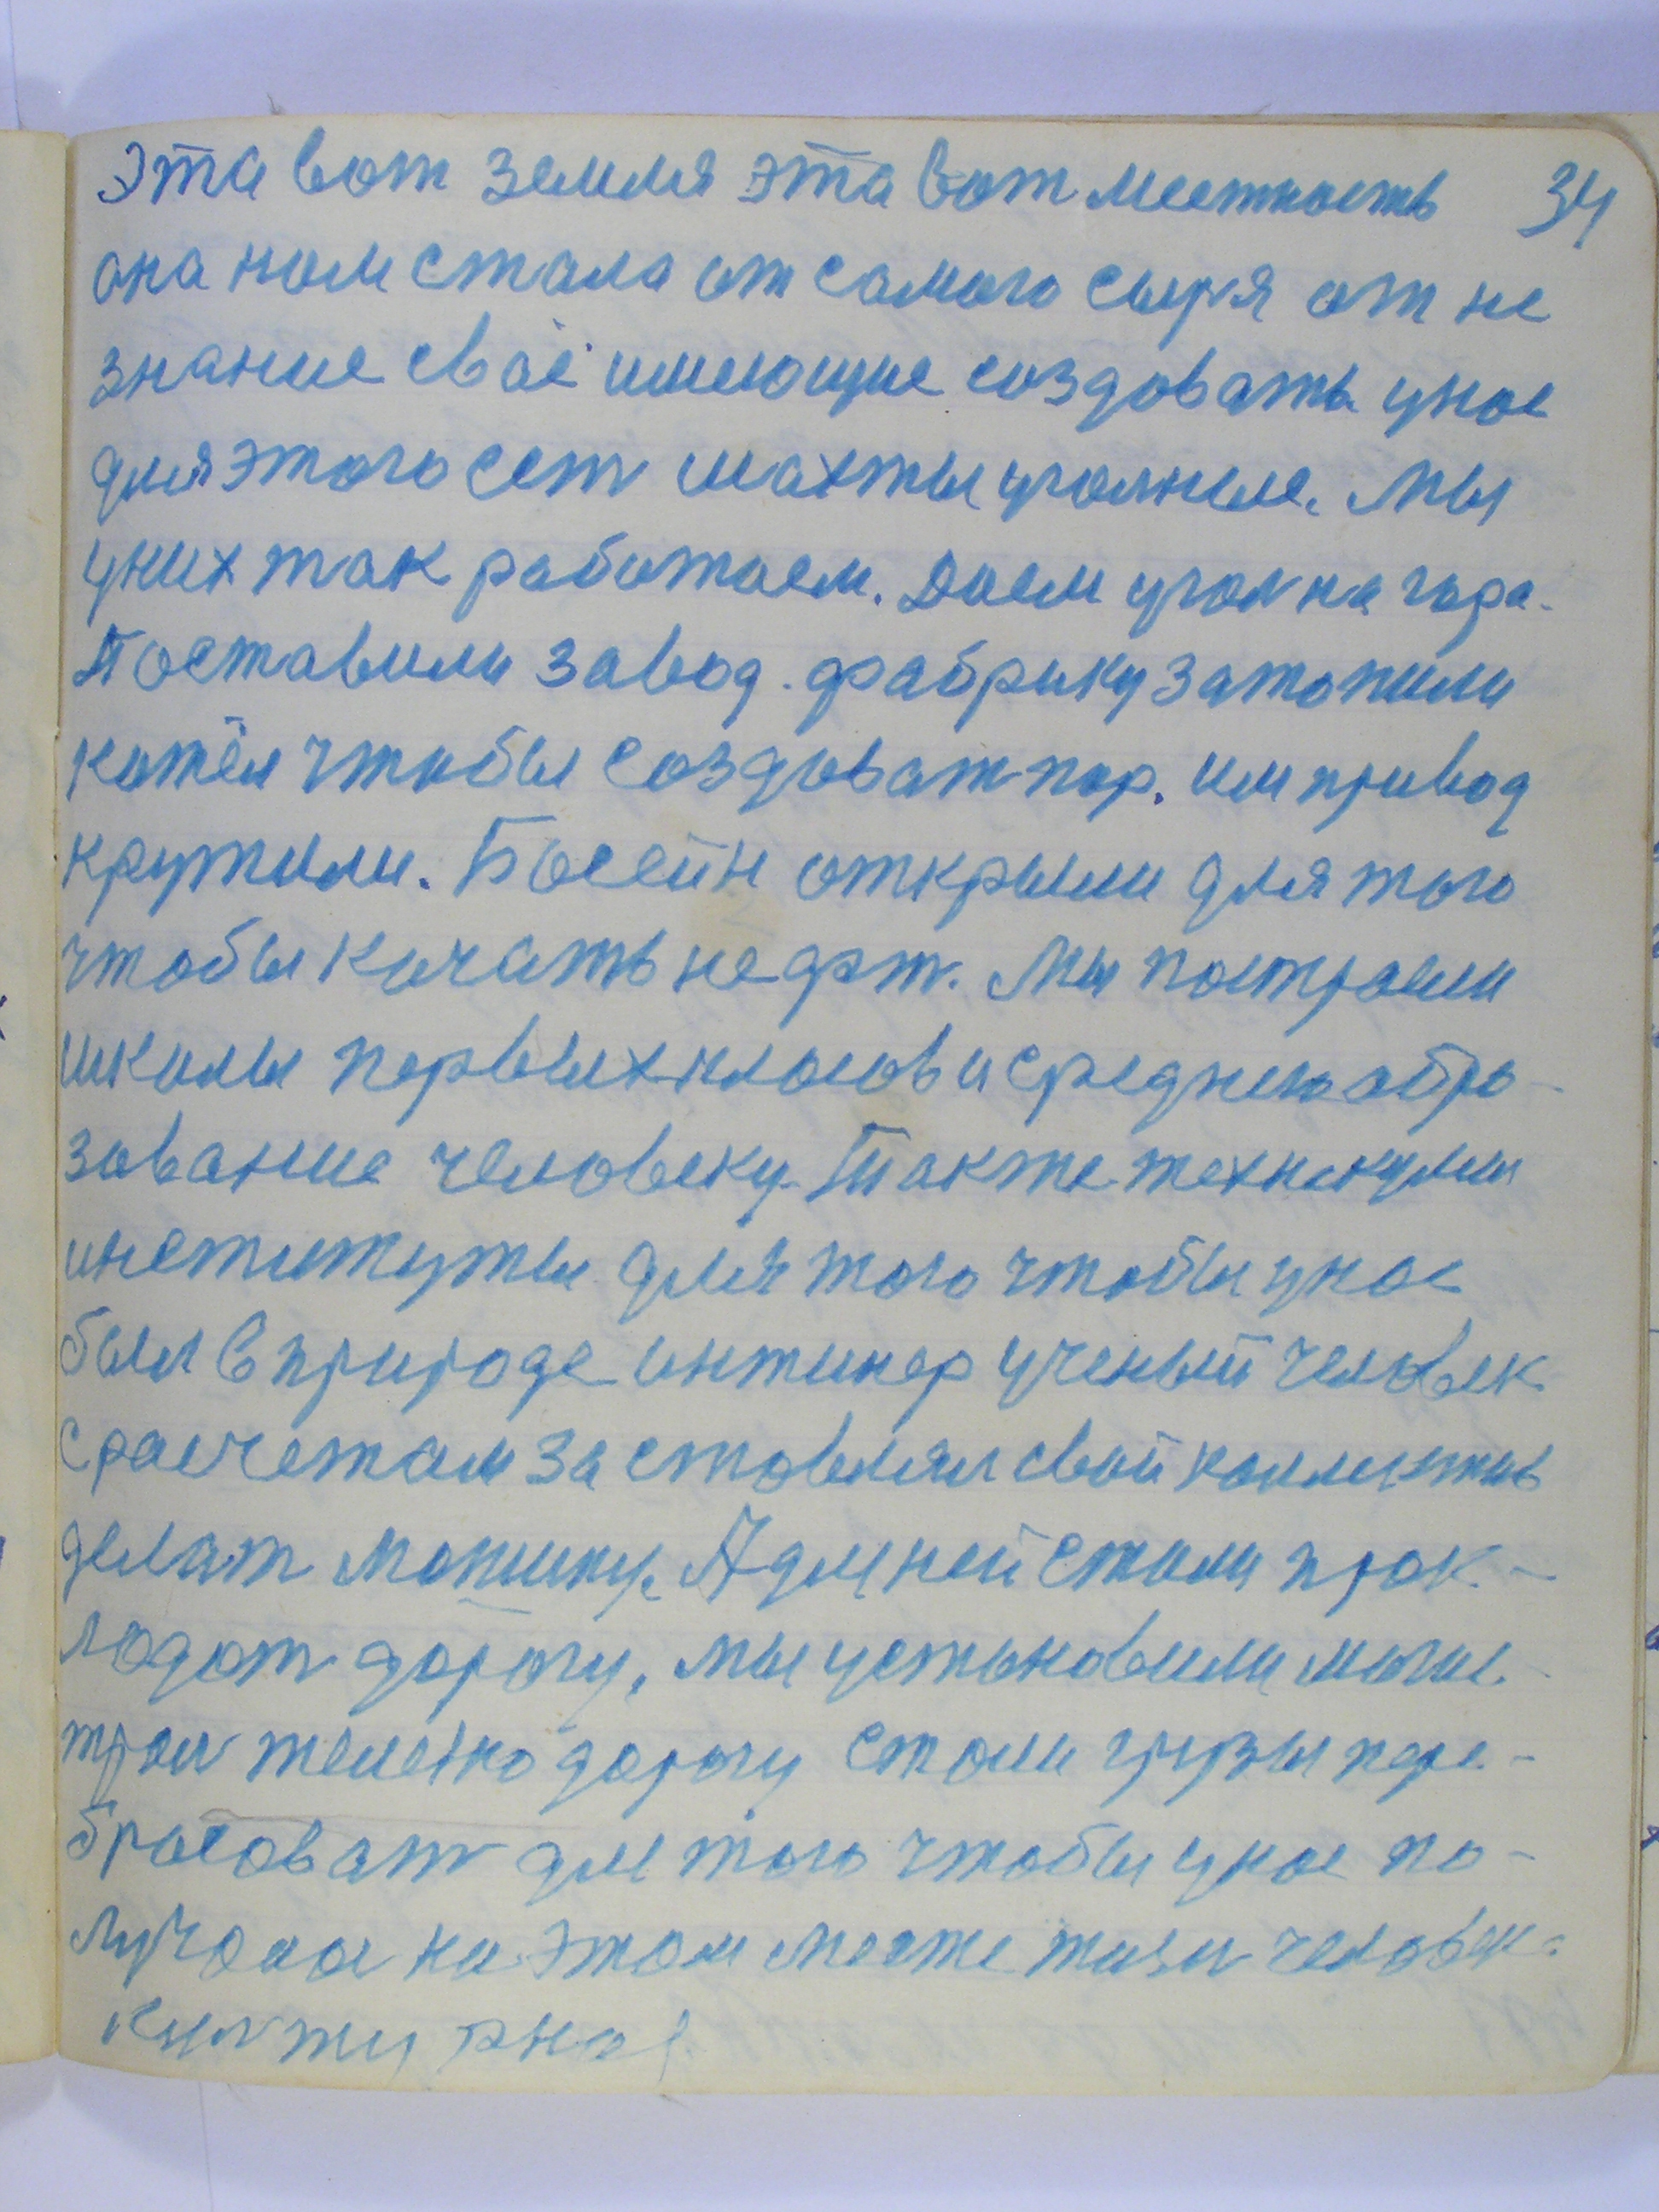 эта вот земля эта вот местность 34
она нам стала от самого сыря от не
знание своё имеющие создовать унас
для этого сет шахты уголные. мы
уних так работаем. Даем угол на гора.
Поставили завод. фабрику затопили
котёл чтобы создоват пар. им привод
крутили. Босейн открыли для того
чтобы качать нефт. мы построили
школы первых класов и среднею обро-
зование человеку. Также техникумы
институты для того чтобы унас
был в природе инжинер ученый человек
с расчетам заставлял свой коллектив
делат машину. А для ней стали прок-
ладат дорогу, мы установили магис-
трал железно дорогу стали грузы пере-
брасоват для того чтобы унас по-
лучалас на этом месте жизн человек.
културно